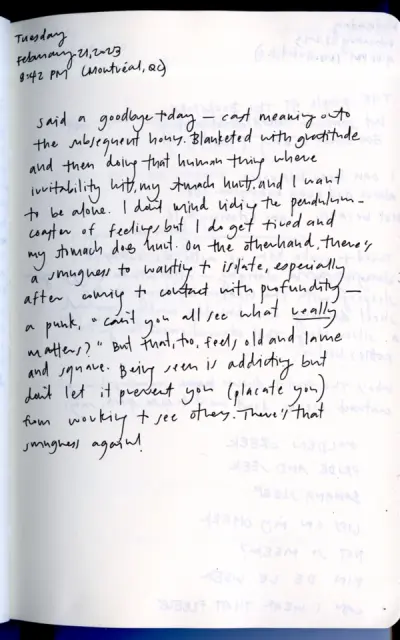 Tuesday
February 21, 2023
9:42 PM (Montréal, QC)
said a goodbye today – cast meaning onto
the subsequent hours. Blanketed with gratitude
and then doing that human thing where
irritability hits, my stomach hurts, and I want
to be alone. I don't mind riding the pendulum-
coaster of feelings but I do get tired and
my stomach does hurt. On the otherhand, there's
a smugness to wanting to isolate, especially
after coming to contact with profundity –
a punk, "can't you all see what really
matters?" But that, too, feels old and lame
and square. Being seen is addicting but
don't let it prevent you (placate you)
from working to see others. There's that
smugness again!